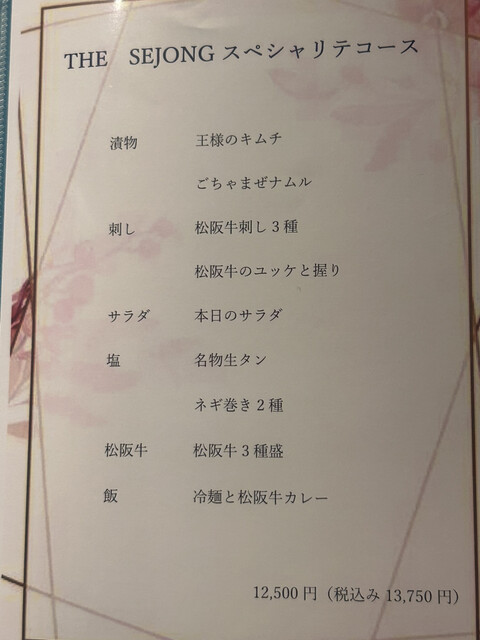 THE　SEJONG スペシャリテコース
漬物　王様のキムチ
ごちゃまぜナムル
刺し　松阪牛刺し３種
松阪牛のユッケと握り
サラダ　本日のサラダ
塩　名物生タン
ネギ巻き２種
松阪牛　松阪牛３種盛
飯　冷麺と松阪牛カレー
12,500 円（税込み 13,750 円）